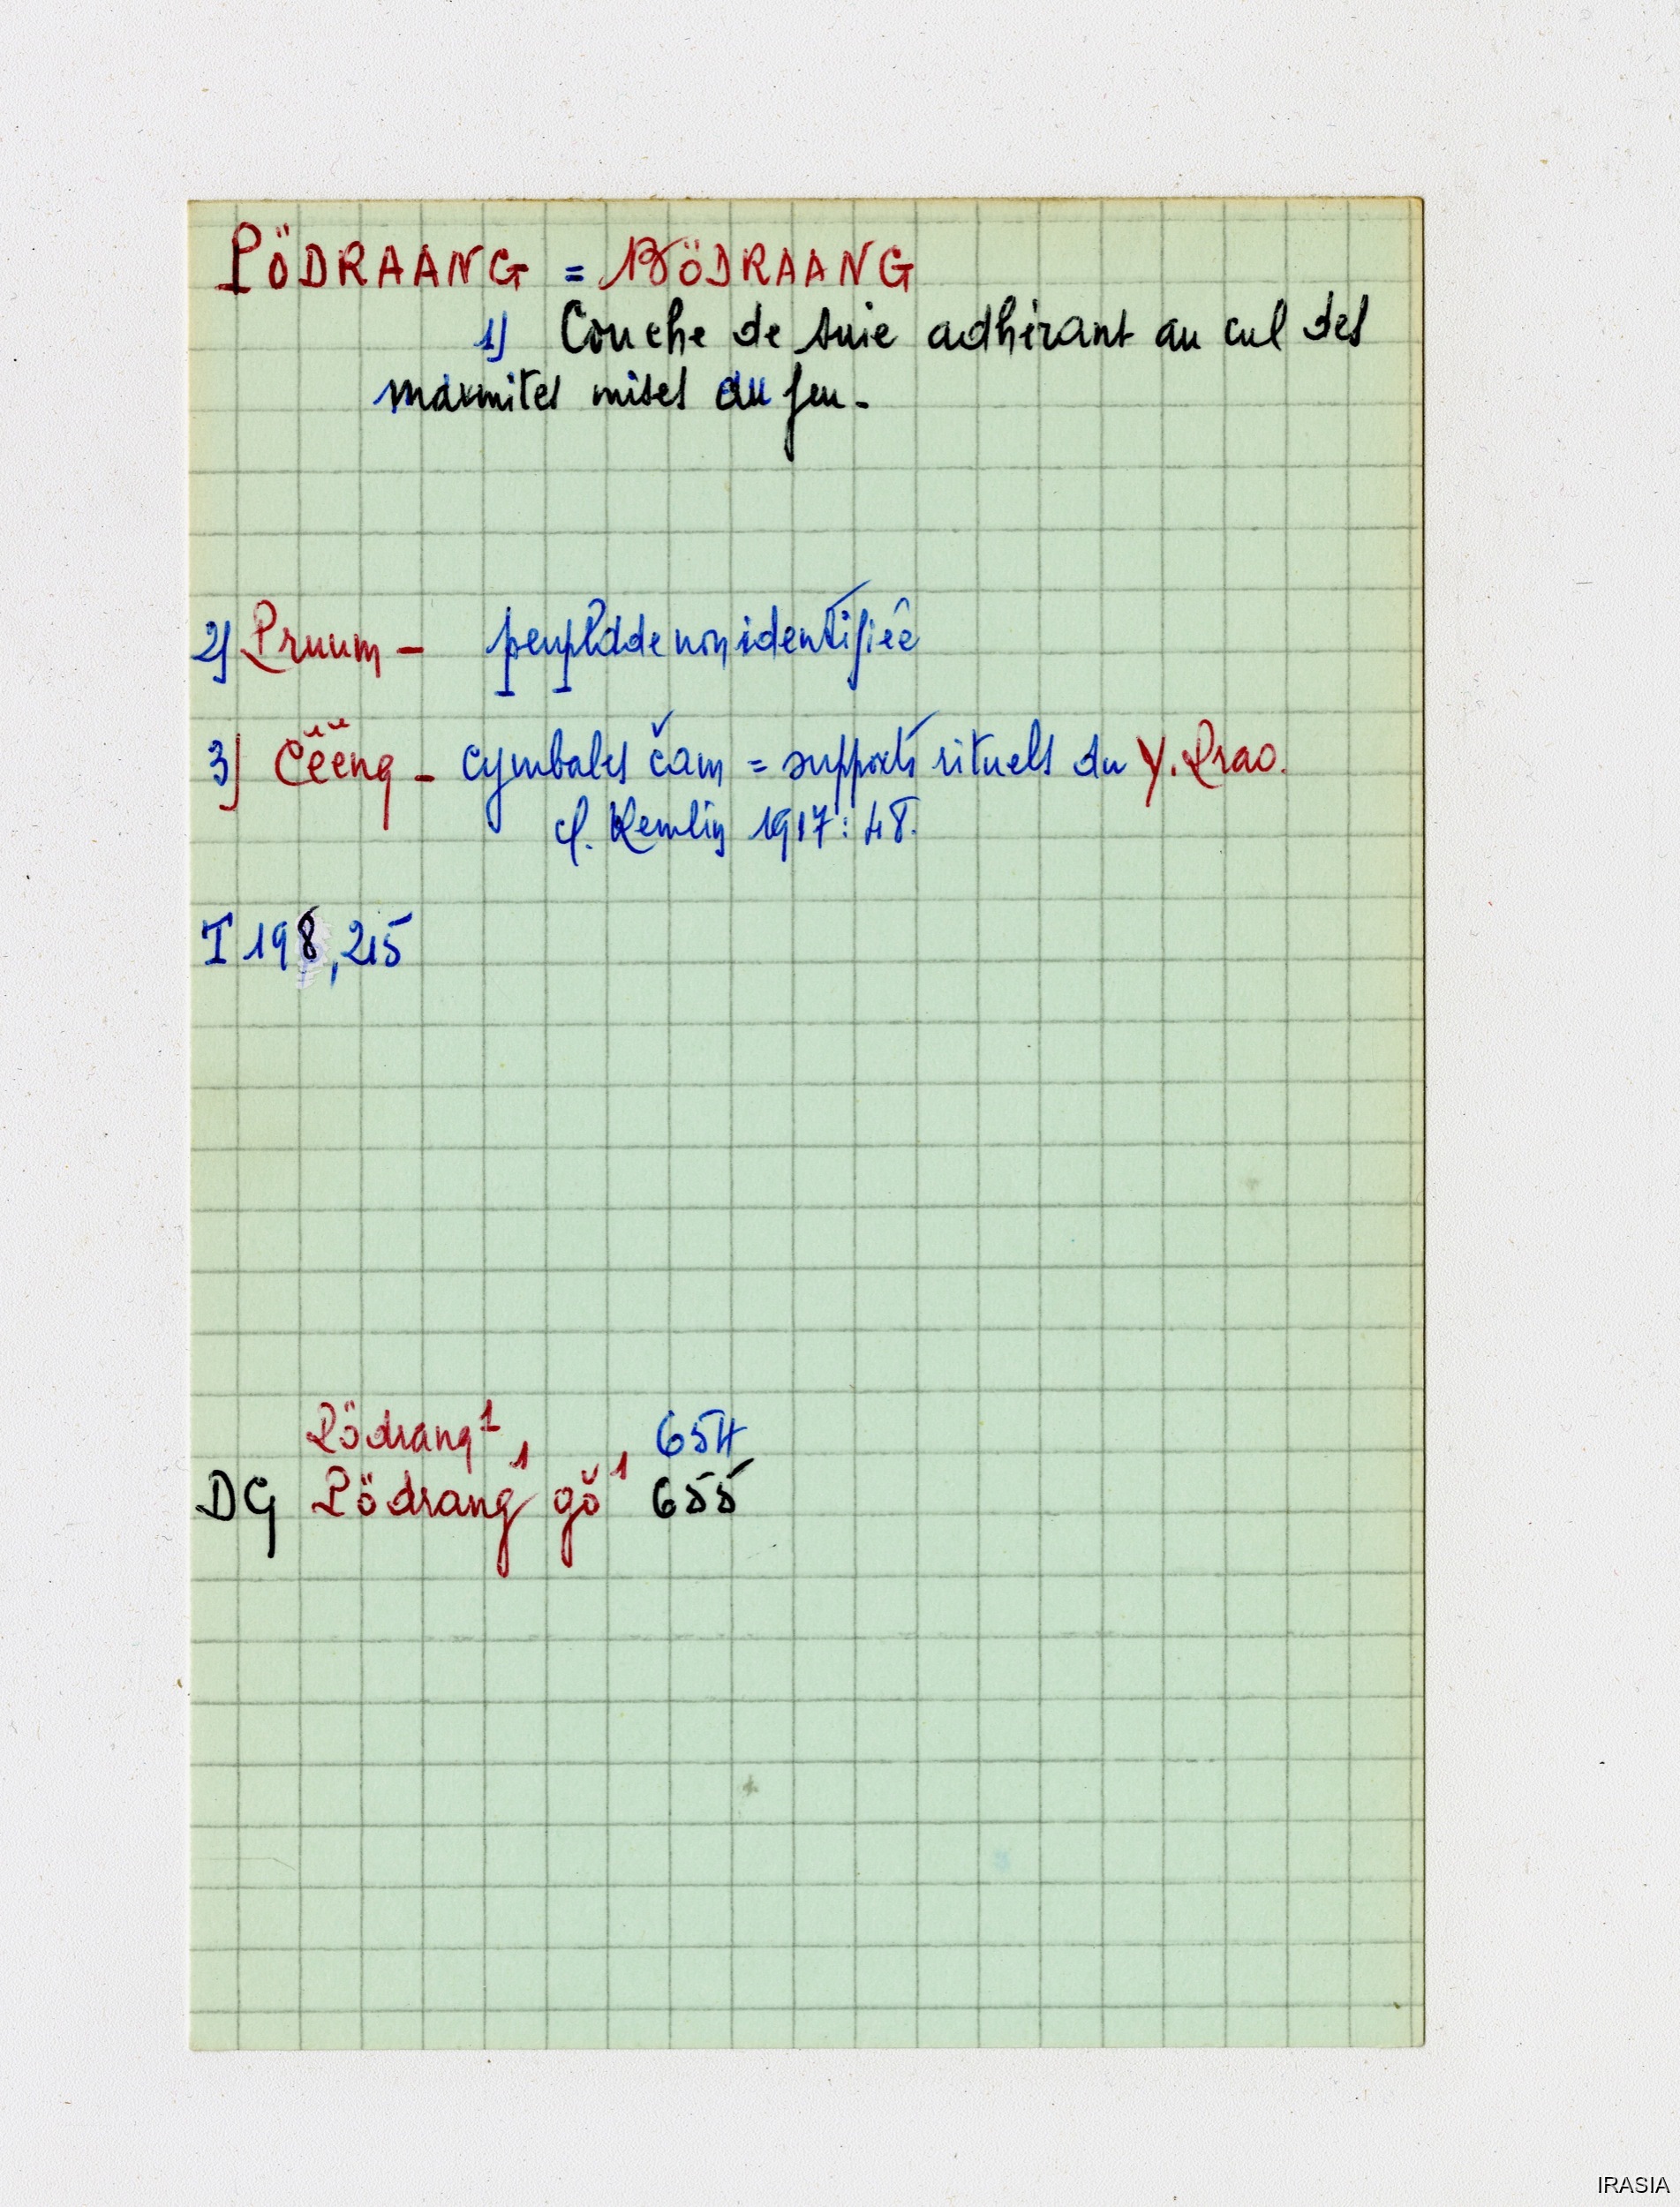 PÖDRAANG = BÖDRAANG
1) Couche de suie adhérant au cul des
marmites mises au feu.
2) Pruum – peuplade non identifiée
3) Čĕĕng – cymbales čam = supports rituels du Y. Prao.
cf. Kemlin 1917 : 48.
I 198, 215
Pödrang¹, 654
DG Pödrang¹ gŏ¹ 655
IRASIA